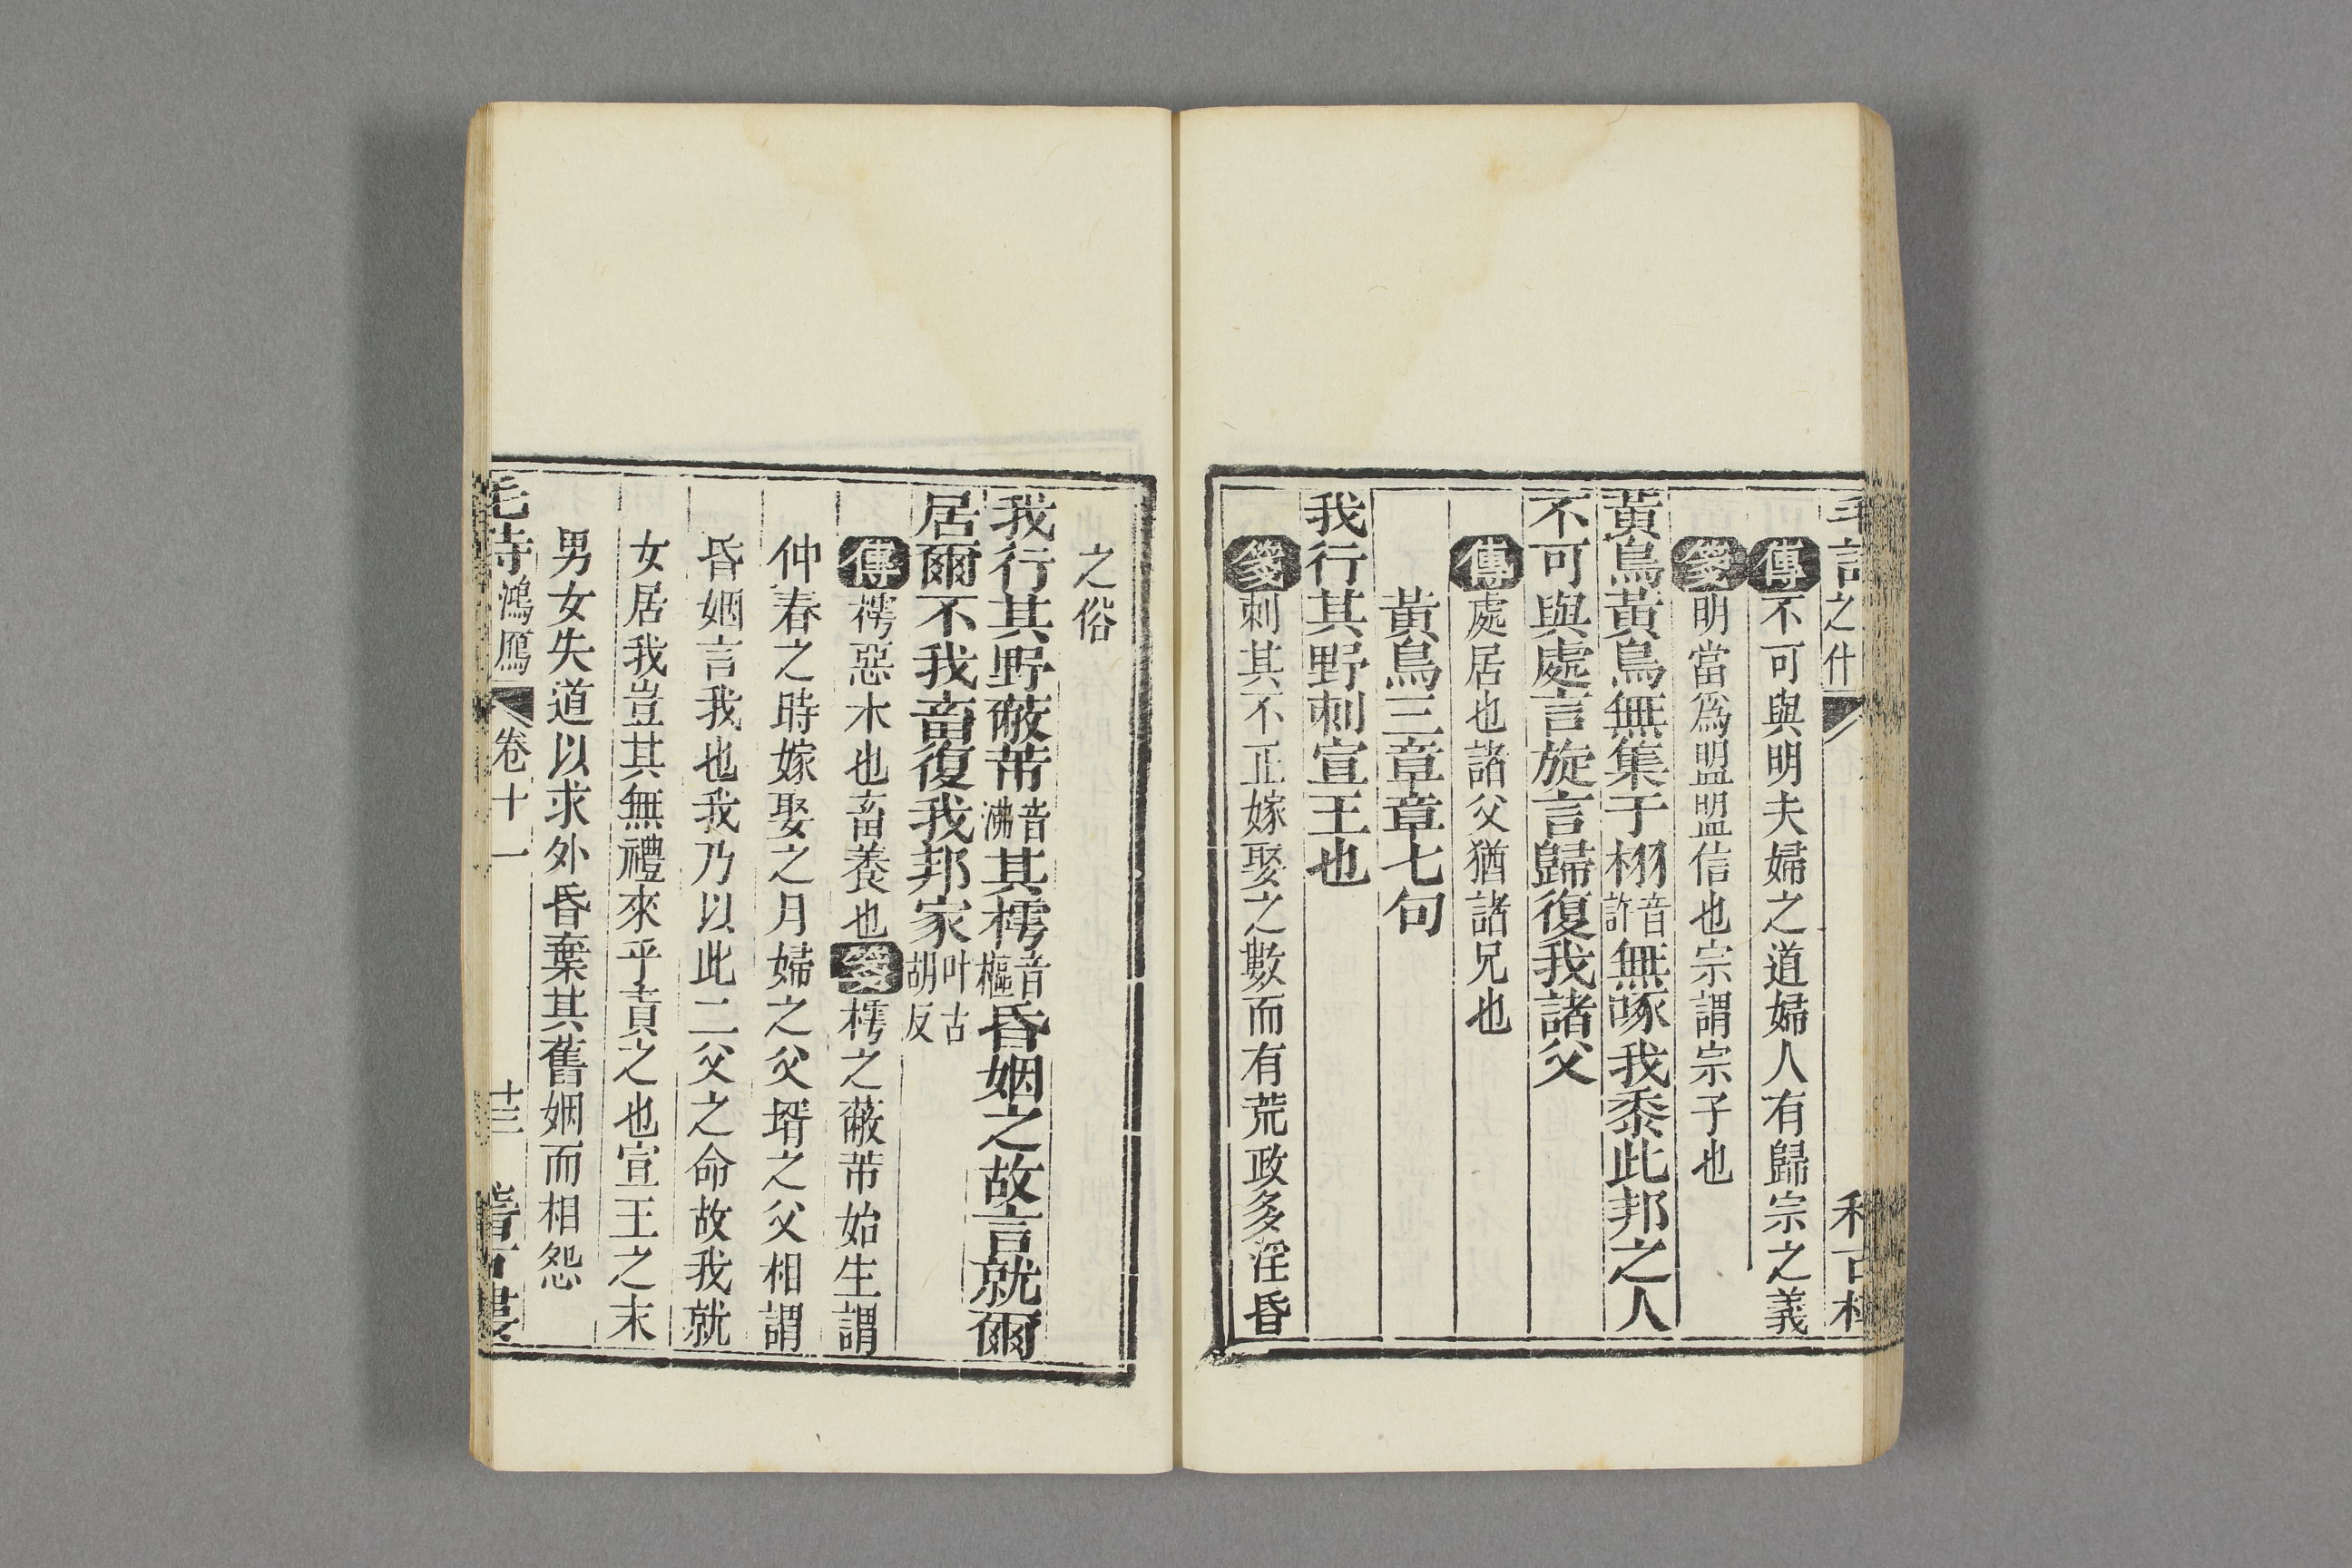 傳不可與明夫婦之道婦人有歸宗之義
箋明當爲盟盟信也宗謂宗子也
黃鳥黃鳥無集于栩音許無啄我黍此邦之人
不可與處言旋言歸復我諸父
傳處居也諸父猶諸兄也
黃鳥三章章七句
我行其野刺宣王也
箋刺其不正嫁娶之數而有荒政多淫昏
之俗
我行其野蔽芾音沸其樗音樞昏姻之故言就爾
居爾不我畜復我邦家叶古胡反
傳樗惡木也畜養也箋樗之蔽芾始生謂
仲春之時嫁娶之月婦之父壻之父相謂
昏姻言我也我乃以此二父之命故我就
女居我豈其無禮來乎責之也宣王之末
男女失道以求外昏棄其舊姻而相怨
毛詩鴻鴈 卷十一 十三